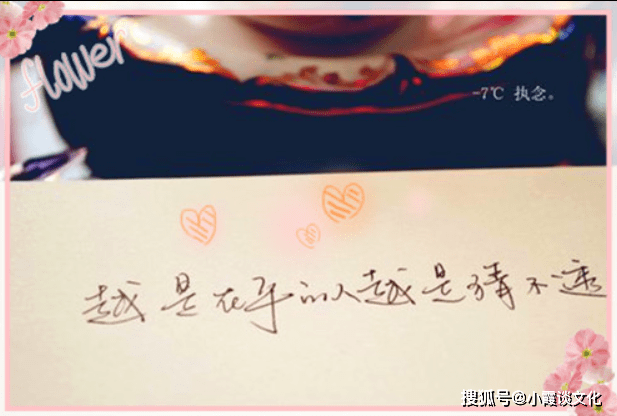 flower
-7℃ 执念。
越是在乎的人越是猜不透
搜狐号@小霞谈文化